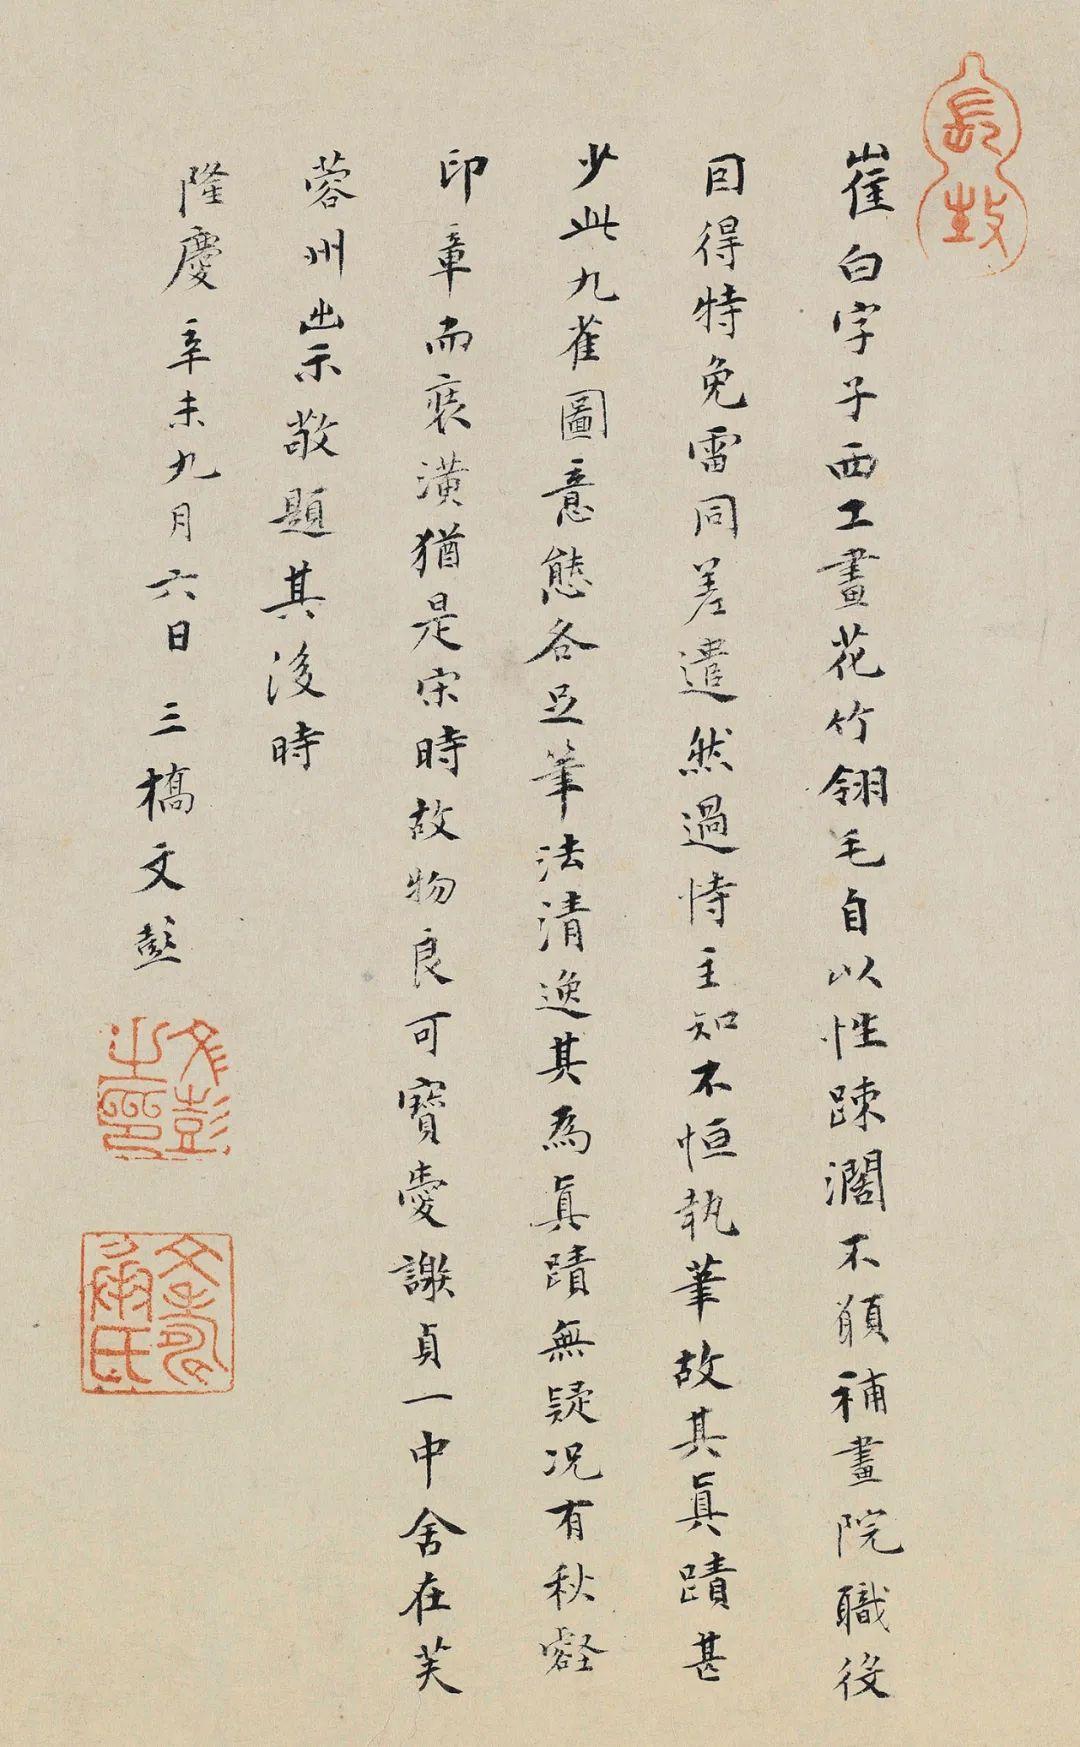 崔白字子西工畫花竹翎毛自以性踈濶不願補畫院職役
囙得特免雷同差遣然過恃主知不恒執筆故其眞蹟甚
少此九雀圖意態各足筆法清逸其為眞蹟無疑况有秋壑
印章而裝潢猶是宋時故物良可寶愛謝貞一中舍在芙
蓉州出示敬題其後時
隆慶辛未九月六日三橋文彭
文彭之印
文壽承氏